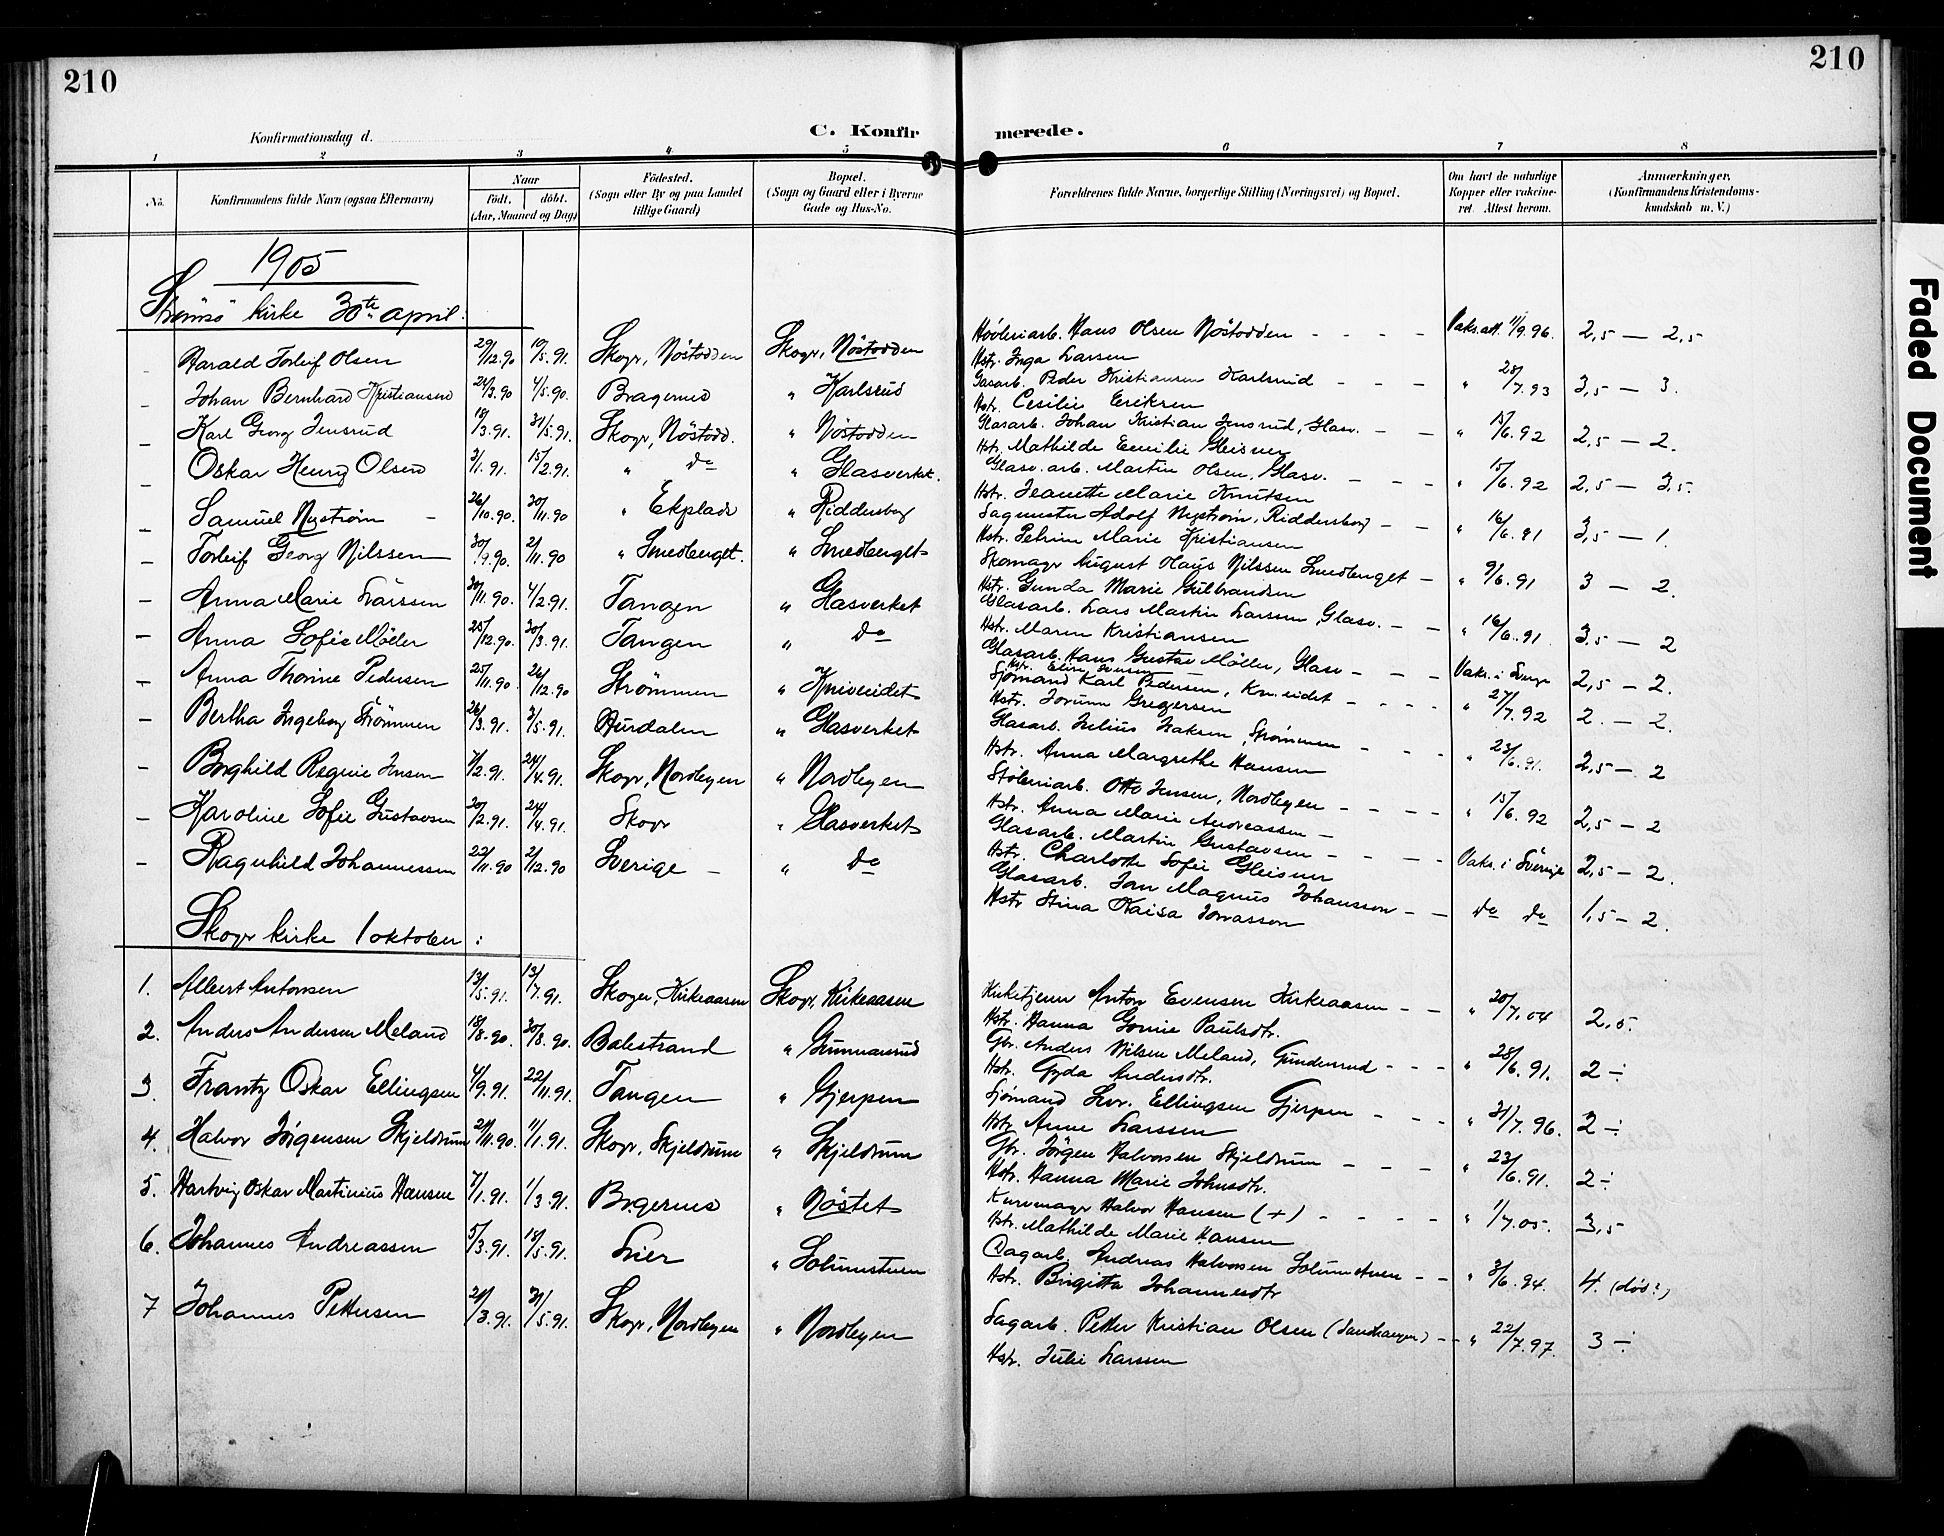 210
210
Konfirmationsdag d.
C. Konfir
merede.
1 2 3 4 5 6 7 8
No.
Konfirmandens fulde Navn (ogsaa Efternavn)
Naar
født. døbt.
(Aar, Maaned og Dag)
Fødested.
(Sogn eller By og paa Landet
tillige Gaard)
Bopæl.
(Sogn og Gaard eller i Byerne
Gade og Hus-No.
Forældrenes fulde Navne, borgerlige Stilling (Næringsvei) og Bopæl.
Om havt de naturlige
Kopper eller vakcine-
ret. Attest herom.
Anmærkninger.
(Konfirmandens Kristendoms-
kundskab m. V.)
1905
Strømsø kirke 30te april.
Harald Torleif Olsen 29/12.90 10/5.91. Skogr, Nöstodden Skogr, Nöstodden Höვleriarb. Hans Olsen Nöstodden - - - - Vaks.att. 11/9.96. 2,5 — 2,5
Hstr. Inga Larsen
Johan Bernhard Kristiansen 24/3.90 4/5.90. Bragernes " Karlsrud Gasarb. Peder Kristiansen Karlsrud - - - " 28/7.93 3,5 — 3.
Hstr. Cesilie Eriksen
Karl Georg Jensrud 18/3.91. 31/5.91. Skogr, Nöstodd. " Nöstodden Glasarb. Johan Kristian Jensrud, Glasv. - - " 17/6.92 2,5 — 2.
Hstr. Mathilde Emilie Gleisner
Oskar Henry Olsen 3/1.91. 15/2.91. " do " Glasverket. Glasv.arb. Martin Olsen, Glasv. - - - " 15/6.92 2,5 — 3,5.
Hstr. Jeanette Marie Knutsen
Samuel Nyström - 26/10.90. 30/11.90 " Ekplads " Riddersborg Sagmester Adolf Nyström, Riddersborg - - " 16/6.91 3,5 — 1.
Hstr. Petrine Marie Kristiansen
Torleif Georg Nilssen 30/9.90. 2/11.90 " Smedbenget. " Smedbenget Skomagr August Olaus Nilssen Smedbenget - " 9/6.91 3 — 2.
Hstr. Gunda Marie Gulbrandsen
Anna Marie Larssen 30/11.90. 4/2.91. Tangen " Glasverket Glasarb. Lars Martin Larssen, Glasv. - - " 16/6.91. 3,5 — 2
Hstr. Maren Kristiansen
Anna Sofie Möller 25/12.90. 30/3.91. Tangen " do Glasarb. Hans Gustav Möller, Glasv - - - Vaks. i Sverige 2,5 — 2.
Anna Thorine Pedersen 25/11.90. 26/12.90 Strömmen " Kniveidet Sjömand Karl Pedersen, Kniveidet - - - - " 27/7.92 2. — 2.
Hstr. Jorunn Gregersen
Bertha Ingeborg Strömmen 26/3.91. 3/5.91. Hurdalen " Glasverket Glasarb. Julius Isaksen Strömmen - - - " 23/6.91. 2,5 — 2
Hstr. Anna Margrethe Hansen
Borghild Regine Jensen 7/2.91. 24/4.91. Skogr, Nordbyen " Nordbyen Støberiarb. Otto Jensen, Nordbyen - - - " 15/6.92 2,5 — 2
Hstr. Anna Marie Andreassen -
Karoline Sofie Gustavsen 20/2.91. 24/4.91. Skogr " Glasverket Glasarb. Martin Gustavsen - - - - Vaks. i Sverige 2,5 — 2.
Hstr. Charlotte Sofie Gleisner
Ragnhild Johannessen 22/11.90 2/12.90 Sverige - " do Glasarb. Jan Magnus Johansson - - do do 1,5 — 2.
Hstr Stina Kaisa Jonasson
Skogr kirke 1 oktober:
1. Albert Antonsen 13/5.91. 13/7.91. Skoger, Kirkeaasen Skogr, Kirkeaasen Kirketjener Anton Evensen Kirkeaasen - - " 20/7.04 2,5.
Hstr. Hanna Gonie Paulsdtr.
2. Anders Andersen Meland 18/8.90. 30/8.90. Balestrand " Gunnarsrud Gbr. Anders Nilsen Meland, Gundersrud - - - " 28/6.91. 2 ÷
Hstr. Gyda Andersdtr.
3. Frantz Oskar Ellingsen 4/9.91. 22/11.91. Tangen " Gjerpen Sjömand Lvr. Ellingsen Gjerpen - - - " 31/7.96. 2 ÷
Hstr Anne Larssen
4. Halvor Jörgensen Skjeldrum 21/11.90. 11/1.91. Skogr, Skjeldrum " Skjeldrum Gbr. Jörgen Halvorsen Skjeldrum - - - " 23/6.91. 2 ÷
Hstr. Hanna Marie Johnsdtr.
5. Hartvig Oskar Martinius Hansen 7/1.91. 1/3.91. Bragernes " Nöstet Kurvmagr Halvor Hansen (+) - - - - " 1/7.05. 3,5
Hstr. Mathilde Marie Hansen
6. Johannes Andreassen 5/3.91. 18/5.91. Lier " Solumstuen Dagarb. Andreas Halvorsen Solumstuen - - " 3/6.94. 4. (döv?)
Hstr. Birgitta Johannesdtr
7 Johannes Pettersen 21/3.91. 31/5.91. Skogr, Nordbyen " Nordbyen Sagarb. Petter Kristian Olsen (Sandhaugen) - - " 22/7.97. 3 ÷
Hstr. Julie Larssen
Faded Document